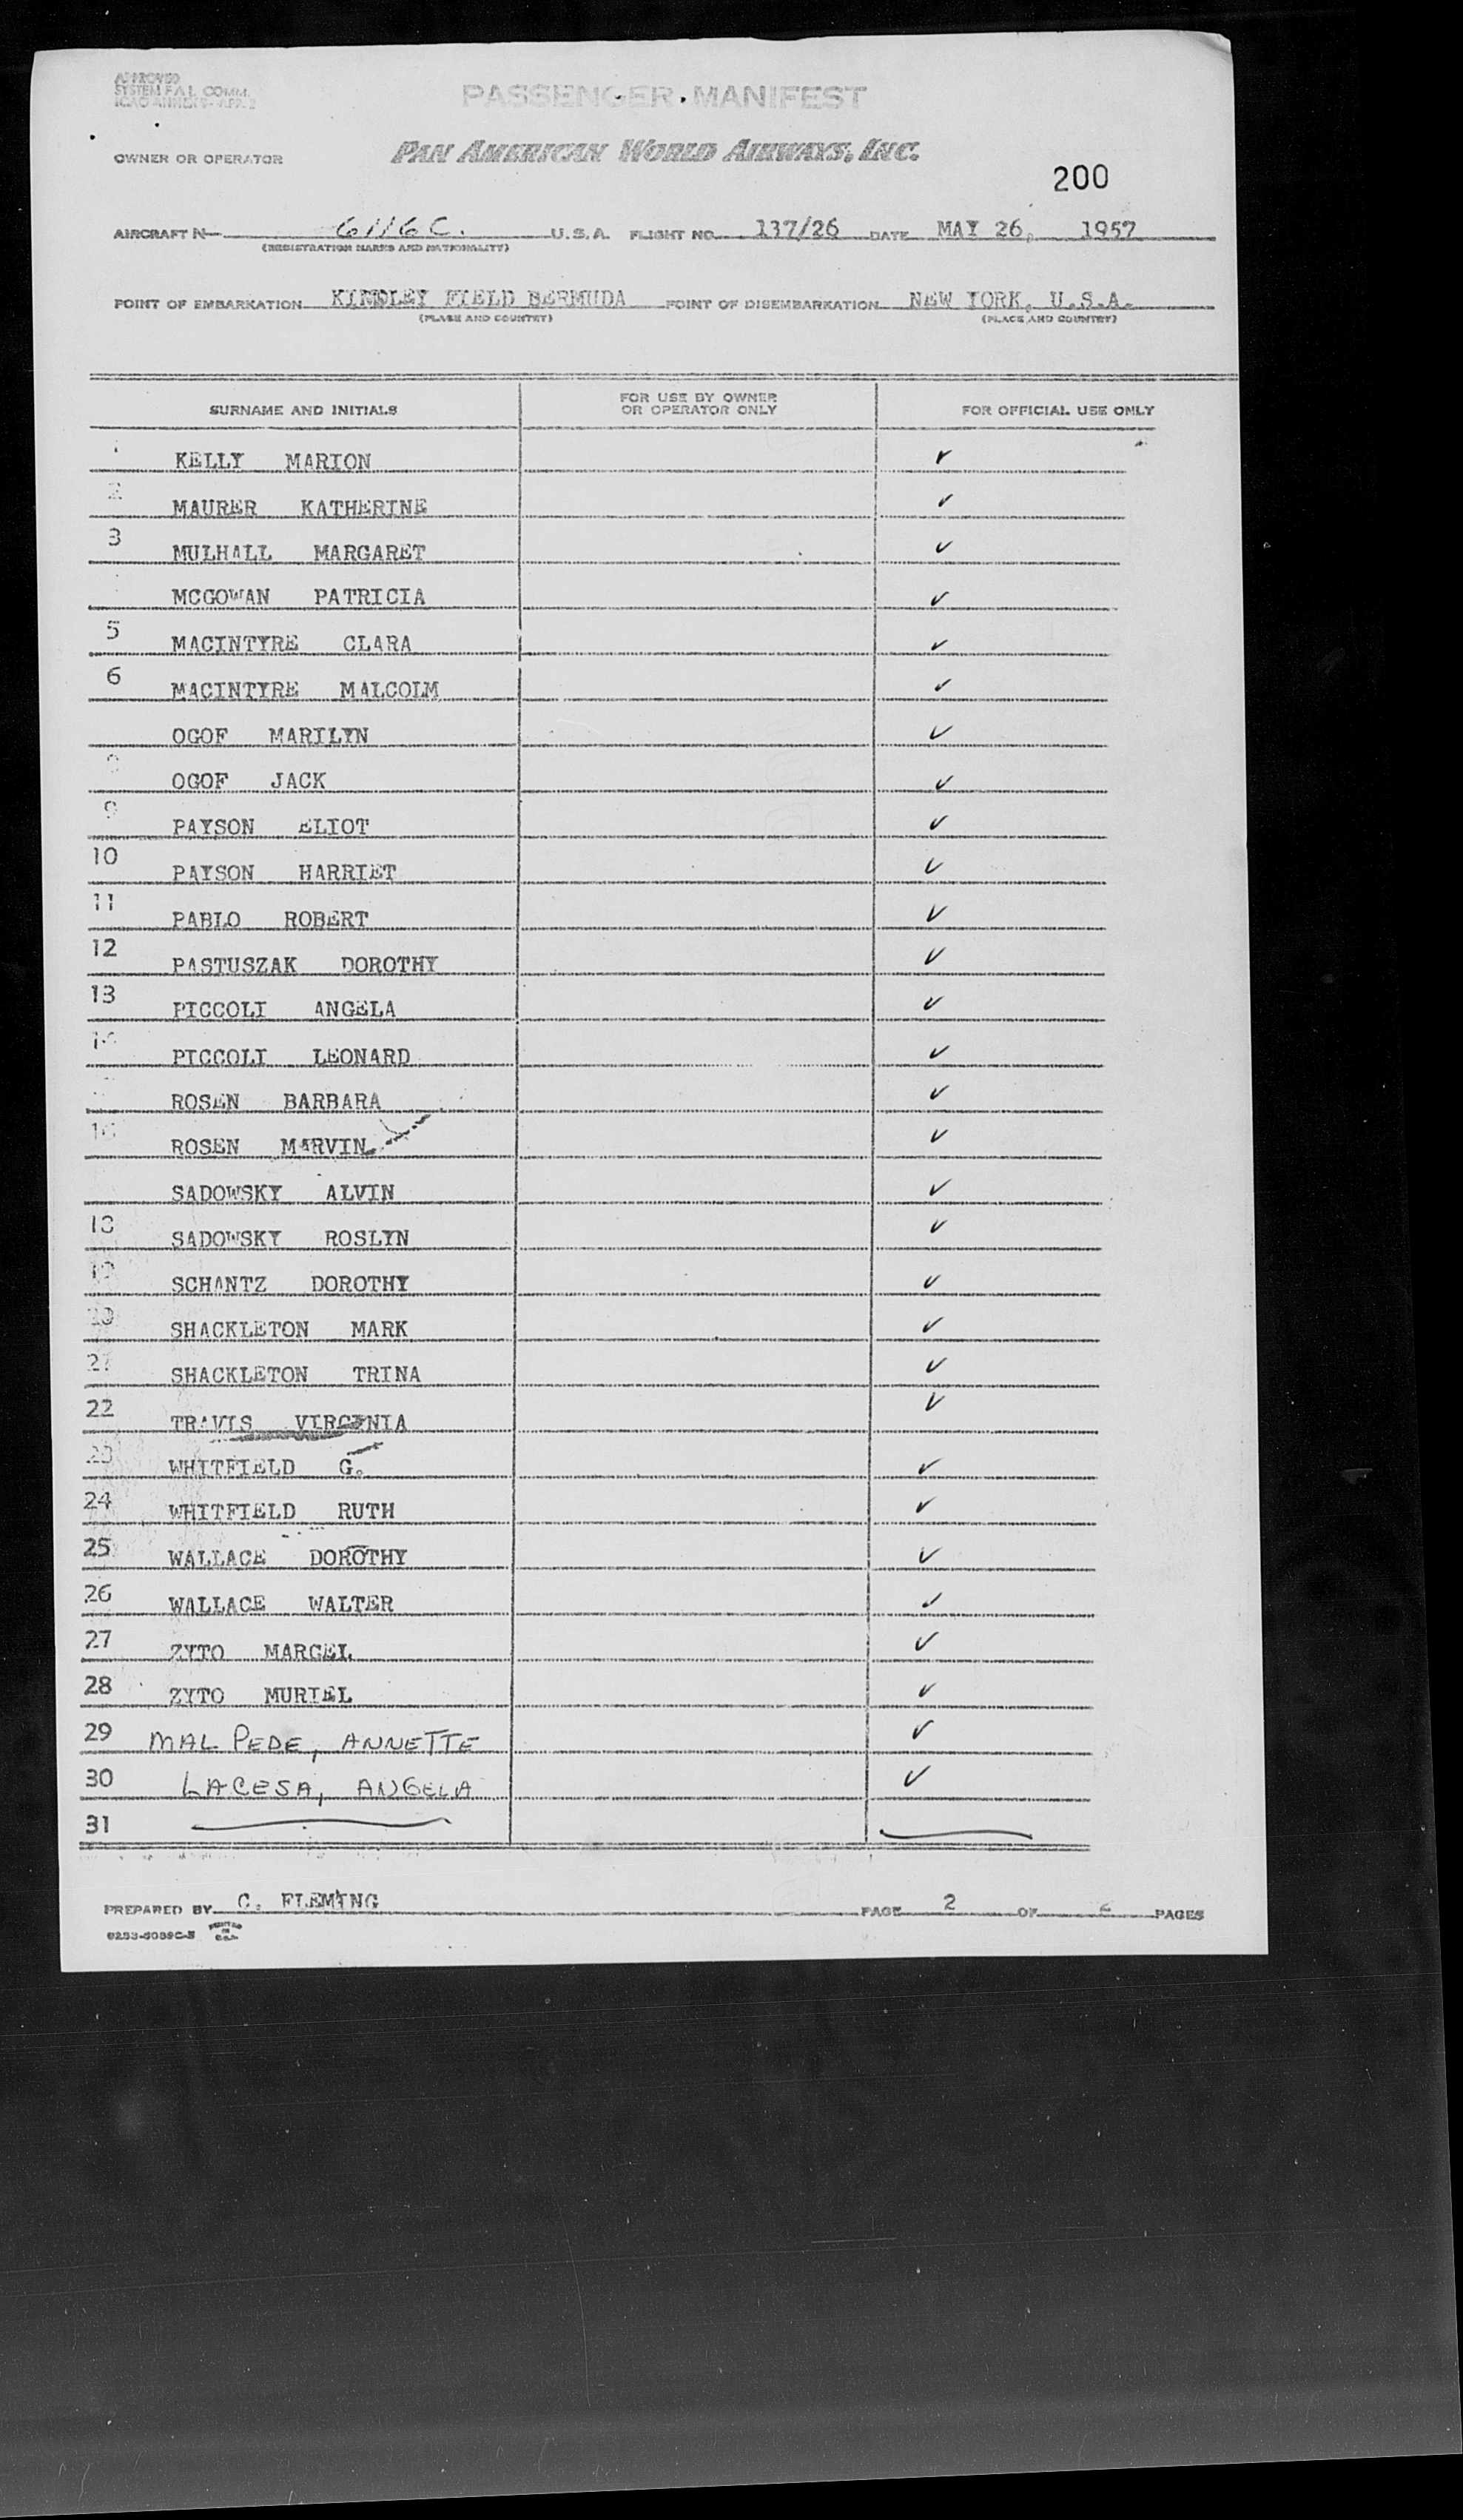 APPROVED
SYSTEM F.A.L. COMM.
ICAO ANNEX 9-APP. 2
PASSENGER MANIFEST
OWNER OR OPERATOR PAN AMERICAN WORLD AIRWAYS, INC.
200
AIRCRAFT N 6116C. U.S.A. FLIGHT NO. 137/26 DATE MAY 26, 1957
(REGISTRATION MARKS AND NATIONALITY)
POINT OF EMBARKATION KINDLEY FIELD BERMUDA POINT OF DISEMBARKATION NEW YORK, U.S.A.
(PLACE AND COUNTRY) (PLACE AND COUNTRY)
SURNAME AND INITIALS FOR USE BY OWNER OR OPERATOR ONLY FOR OFFICIAL USE ONLY
KELLY MARION ✓
2 MAURER KATHERINE ✓
3 MULHALL MARGARET ✓
MCGOWAN PATRICIA ✓
5 MACINTYRE CLARA ✓
6 MACINTYRE MALCOLM ✓
OGOF MARILYN ✓
OGOF JACK ✓
9 PAYSON ELIOT ✓
10 PAYSON HARRIET ✓
11 PABLO ROBERT ✓
12 PASTUSZAK DOROTHY ✓
13 PICCOLI ANGELA ✓
14 PICCOLI LEONARD ✓
ROSEN BARBARA ✓
16 ROSEN MARVIN ✓
SADOWSKY ALVIN ✓
18 SADOWSKY ROSLYN ✓
19 SCHANTZ DOROTHY ✓
20 SHACKLETON MARK ✓
21 SHACKLETON TRINA ✓
22 TRAVIS VIRGINIA ✓
23 WHITFIELD G. ✓
24 WHITFIELD RUTH ✓
25 WALLACE DOROTHY ✓
26 WALLACE WALTER ✓
27 ZYTO MARCEL ✓
28 ZYTO MURIEL ✓
29 MALPEDE, ANNETTE ✓
30 LACESA, ANGELA ✓
31
PREPARED BY C. FLEMING PAGE 2 OF 2 PAGES
PRINTED IN U.S.A.